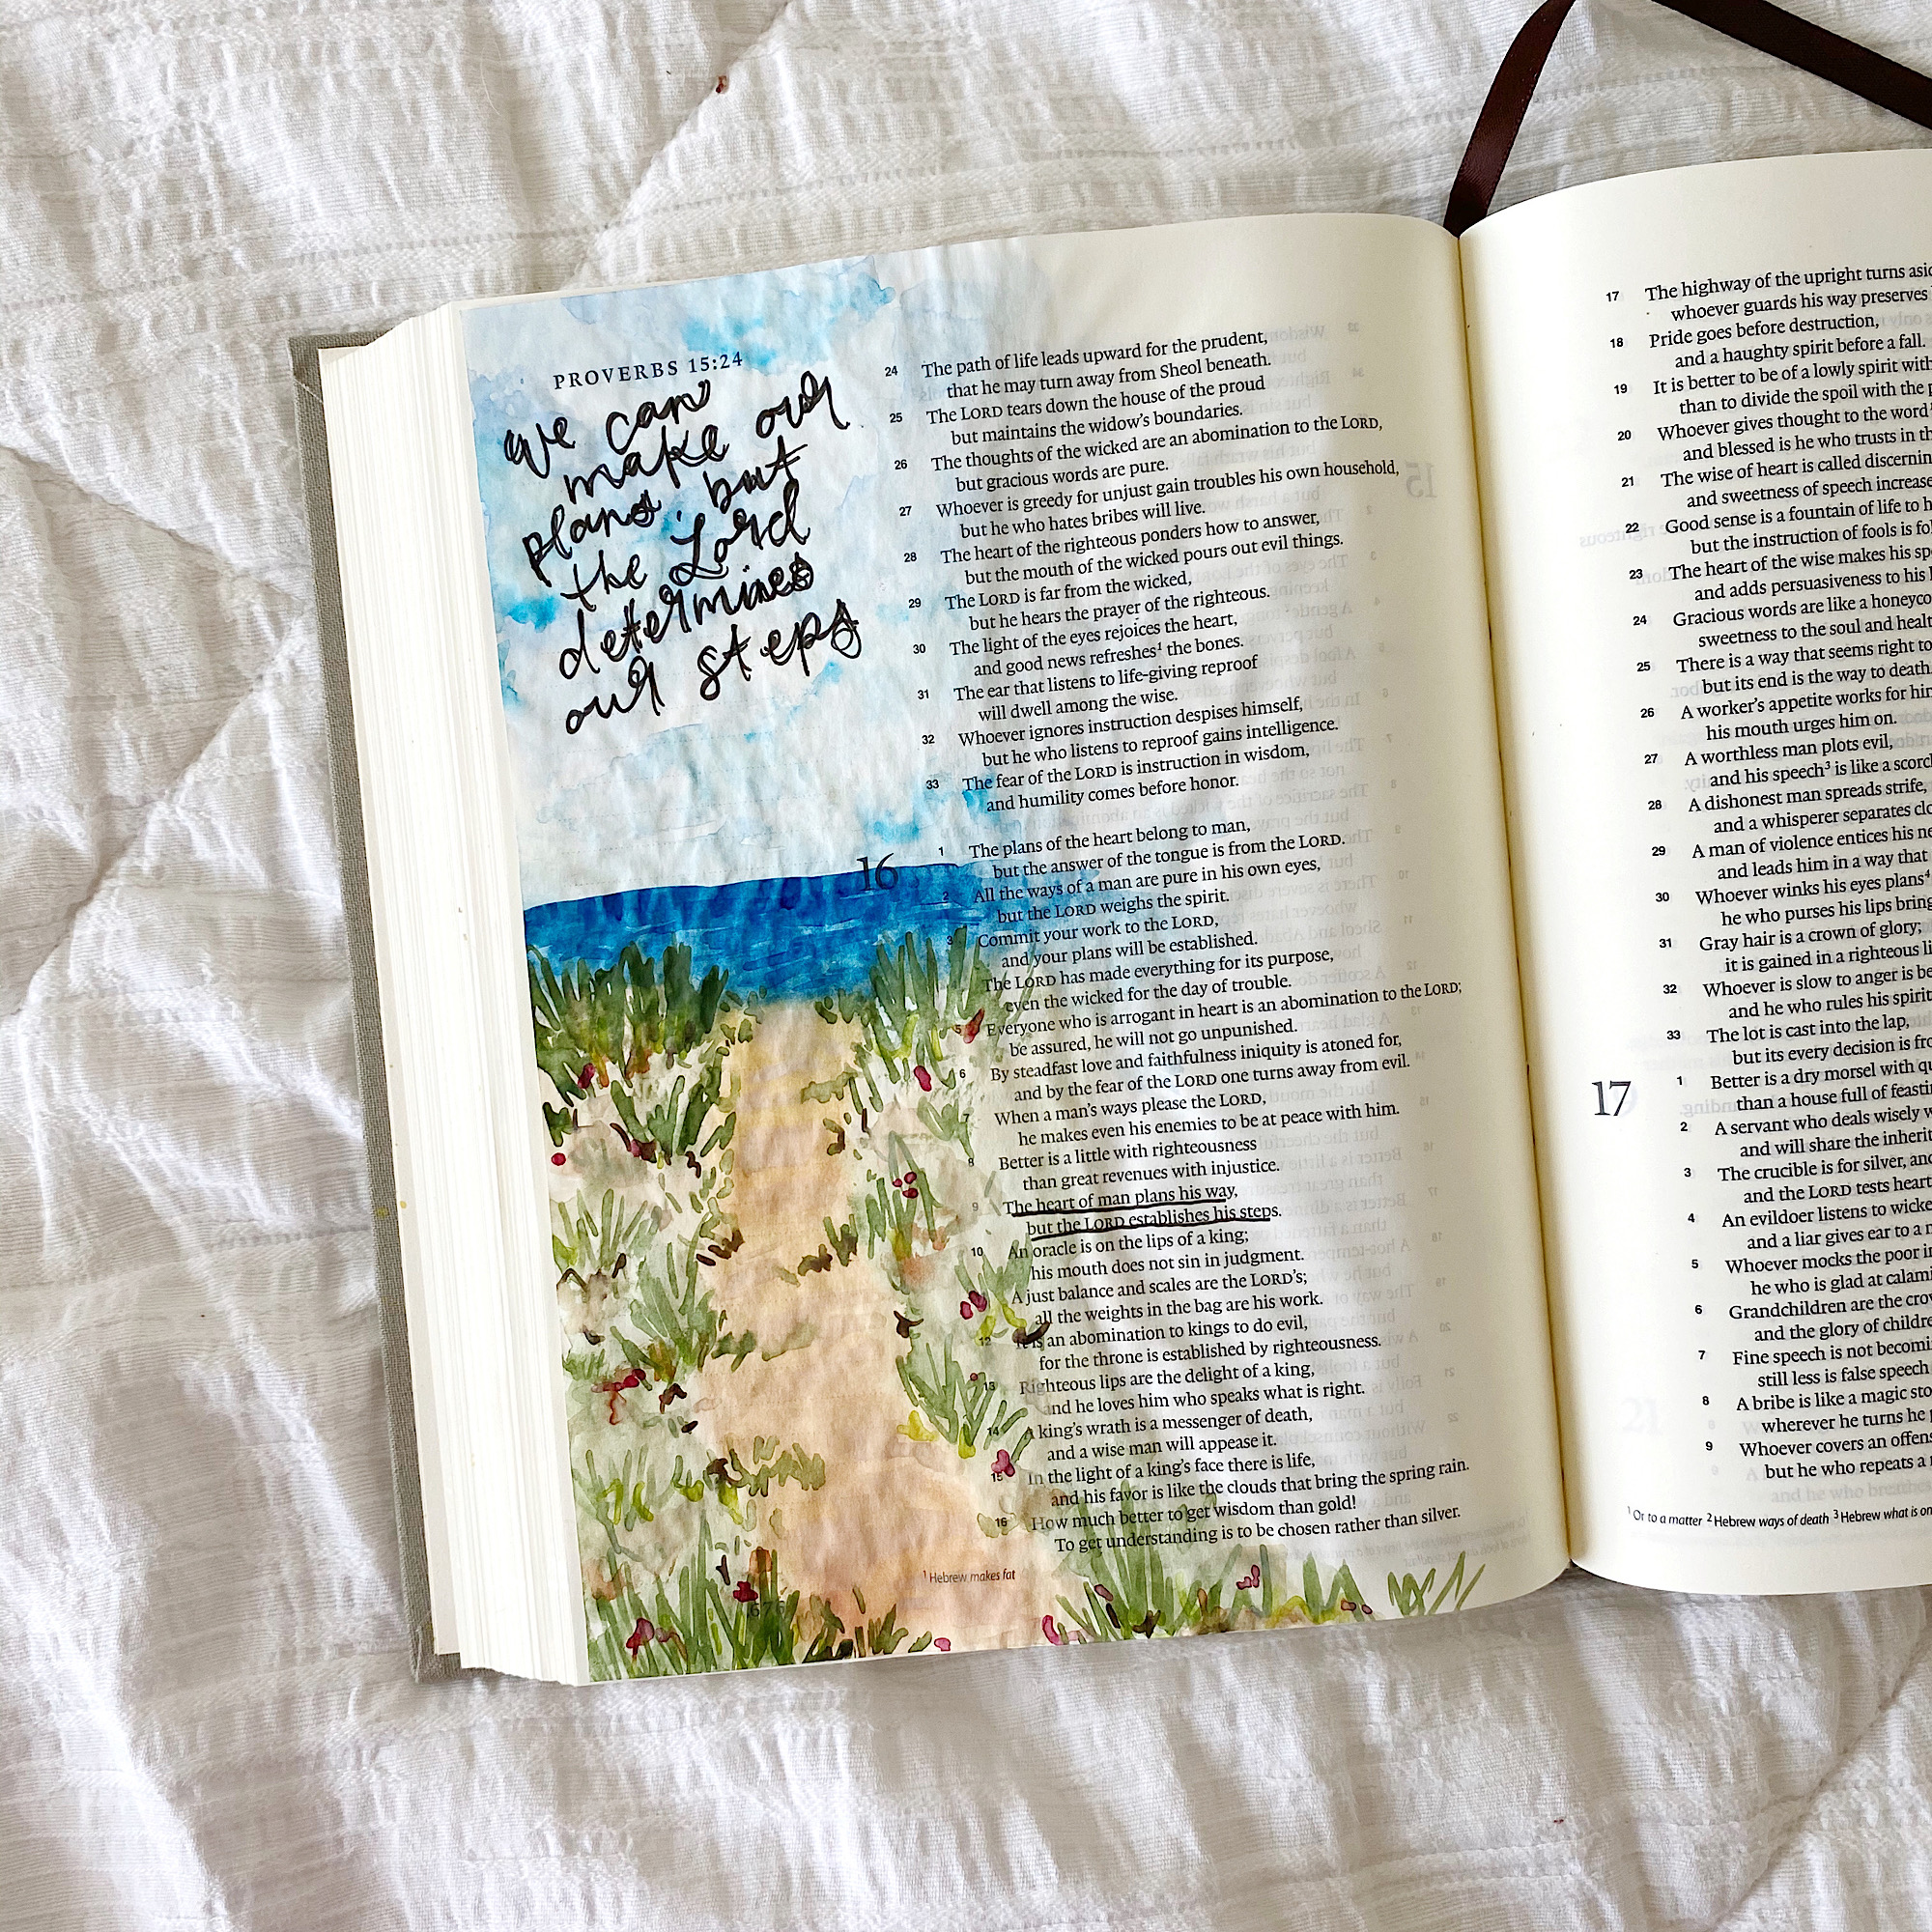 PROVERBS 15:24
we can
make our
plans, but
the Lord
determines
our steps
24 The path of life leads upward for the prudent,
that he may turn away from Sheol beneath.
25 The LORD tears down the house of the proud
but maintains the widow's boundaries.
26 The thoughts of the wicked are an abomination to the LORD,
but gracious words are pure.
27 Whoever is greedy for unjust gain troubles his own household,
but he who hates bribes will live.
28 The heart of the righteous ponders how to answer,
but the mouth of the wicked pours out evil things.
29 The LORD is far from the wicked,
but he hears the prayer of the righteous.
30 The light of the eyes rejoices the heart,
and good news refreshes¹ the bones.
31 The ear that listens to life-giving reproof
will dwell among the wise.
32 Whoever ignores instruction despises himself,
but he who listens to reproof gains intelligence.
33 The fear of the LORD is instruction in wisdom,
and humility comes before honor.
16
1 The plans of the heart belong to man,
but the answer of the tongue is from the LORD.
2 All the ways of a man are pure in his own eyes,
but the LORD weighs the spirit.
3 Commit your work to the LORD,
and your plans will be established.
The LORD has made everything for its purpose,
even the wicked for the day of trouble.
5 Everyone who is arrogant in heart is an abomination to the LORD;
be assured, he will not go unpunished.
6 By steadfast love and faithfulness iniquity is atoned for,
and by the fear of the LORD one turns away from evil.
7 When a man's ways please the LORD,
he makes even his enemies to be at peace with him.
8 Better is a little with righteousness
than great revenues with injustice.
9 The heart of man plans his way,
but the LORD establishes his steps.
10 An oracle is on the lips of a king;
his mouth does not sin in judgment.
A just balance and scales are the LORD's;
all the weights in the bag are his work.
12 It is an abomination to kings to do evil,
for the throne is established by righteousness.
13 Righteous lips are the delight of a king,
and he loves him who speaks what is right.
14 A king's wrath is a messenger of death,
and a wise man will appease it.
15 In the light of a king's face there is life,
and his favor is like the clouds that bring the spring rain.
16 How much better to get wisdom than gold!
To get understanding is to be chosen rather than silver.
¹ Hebrew makes fat
17 The highway of the upright turns
whoever guards his way preserves
18 Pride goes before destruction,
and a haughty spirit before a fall.
19 It is better to be of a lowly spirit with
than to divide the spoil with the
20 Whoever gives thought to the word
and blessed is he who trusts in
21 The wise of heart is called
and sweetness of speech
22 Good sense is a fountain of life to
but the instruction of fools is
23 The heart of the wise makes his
and adds persuasiveness to his
24 Gracious words are like a
sweetness to the soul and
25 There is a way that seems right to
but its end is the way to death.
26 A worker's appetite works for
his mouth urges him on.
27 A worthless man plots evil,
and his speech³ is like a
28 A dishonest man spreads strife,
and a whisperer separates
29 A man of violence entices his
and leads him in a way that
30 Whoever winks his eyes plans⁴
he who purses his lips
31 Gray hair is a crown of glory;
it is gained in a righteous
32 Whoever is slow to anger is
and he who rules his
33 The lot is cast into the lap,
but its every decision is
17
1 Better is a dry morsel with
than a house full of
2 A servant who deals wisely
and will share the
3 The crucible is for silver,
and the LORD tests
4 An evildoer listens to
and a liar gives ear to a
5 Whoever mocks the poor
he who is glad at
6 Grandchildren are the
and the glory of
7 Fine speech is not
still less is false speech
8 A bribe is like a magic
wherever he turns he
9 Whoever covers an
but he who repeats a
¹ Or to a matter ² Hebrew ways of death ³ Hebrew what is on